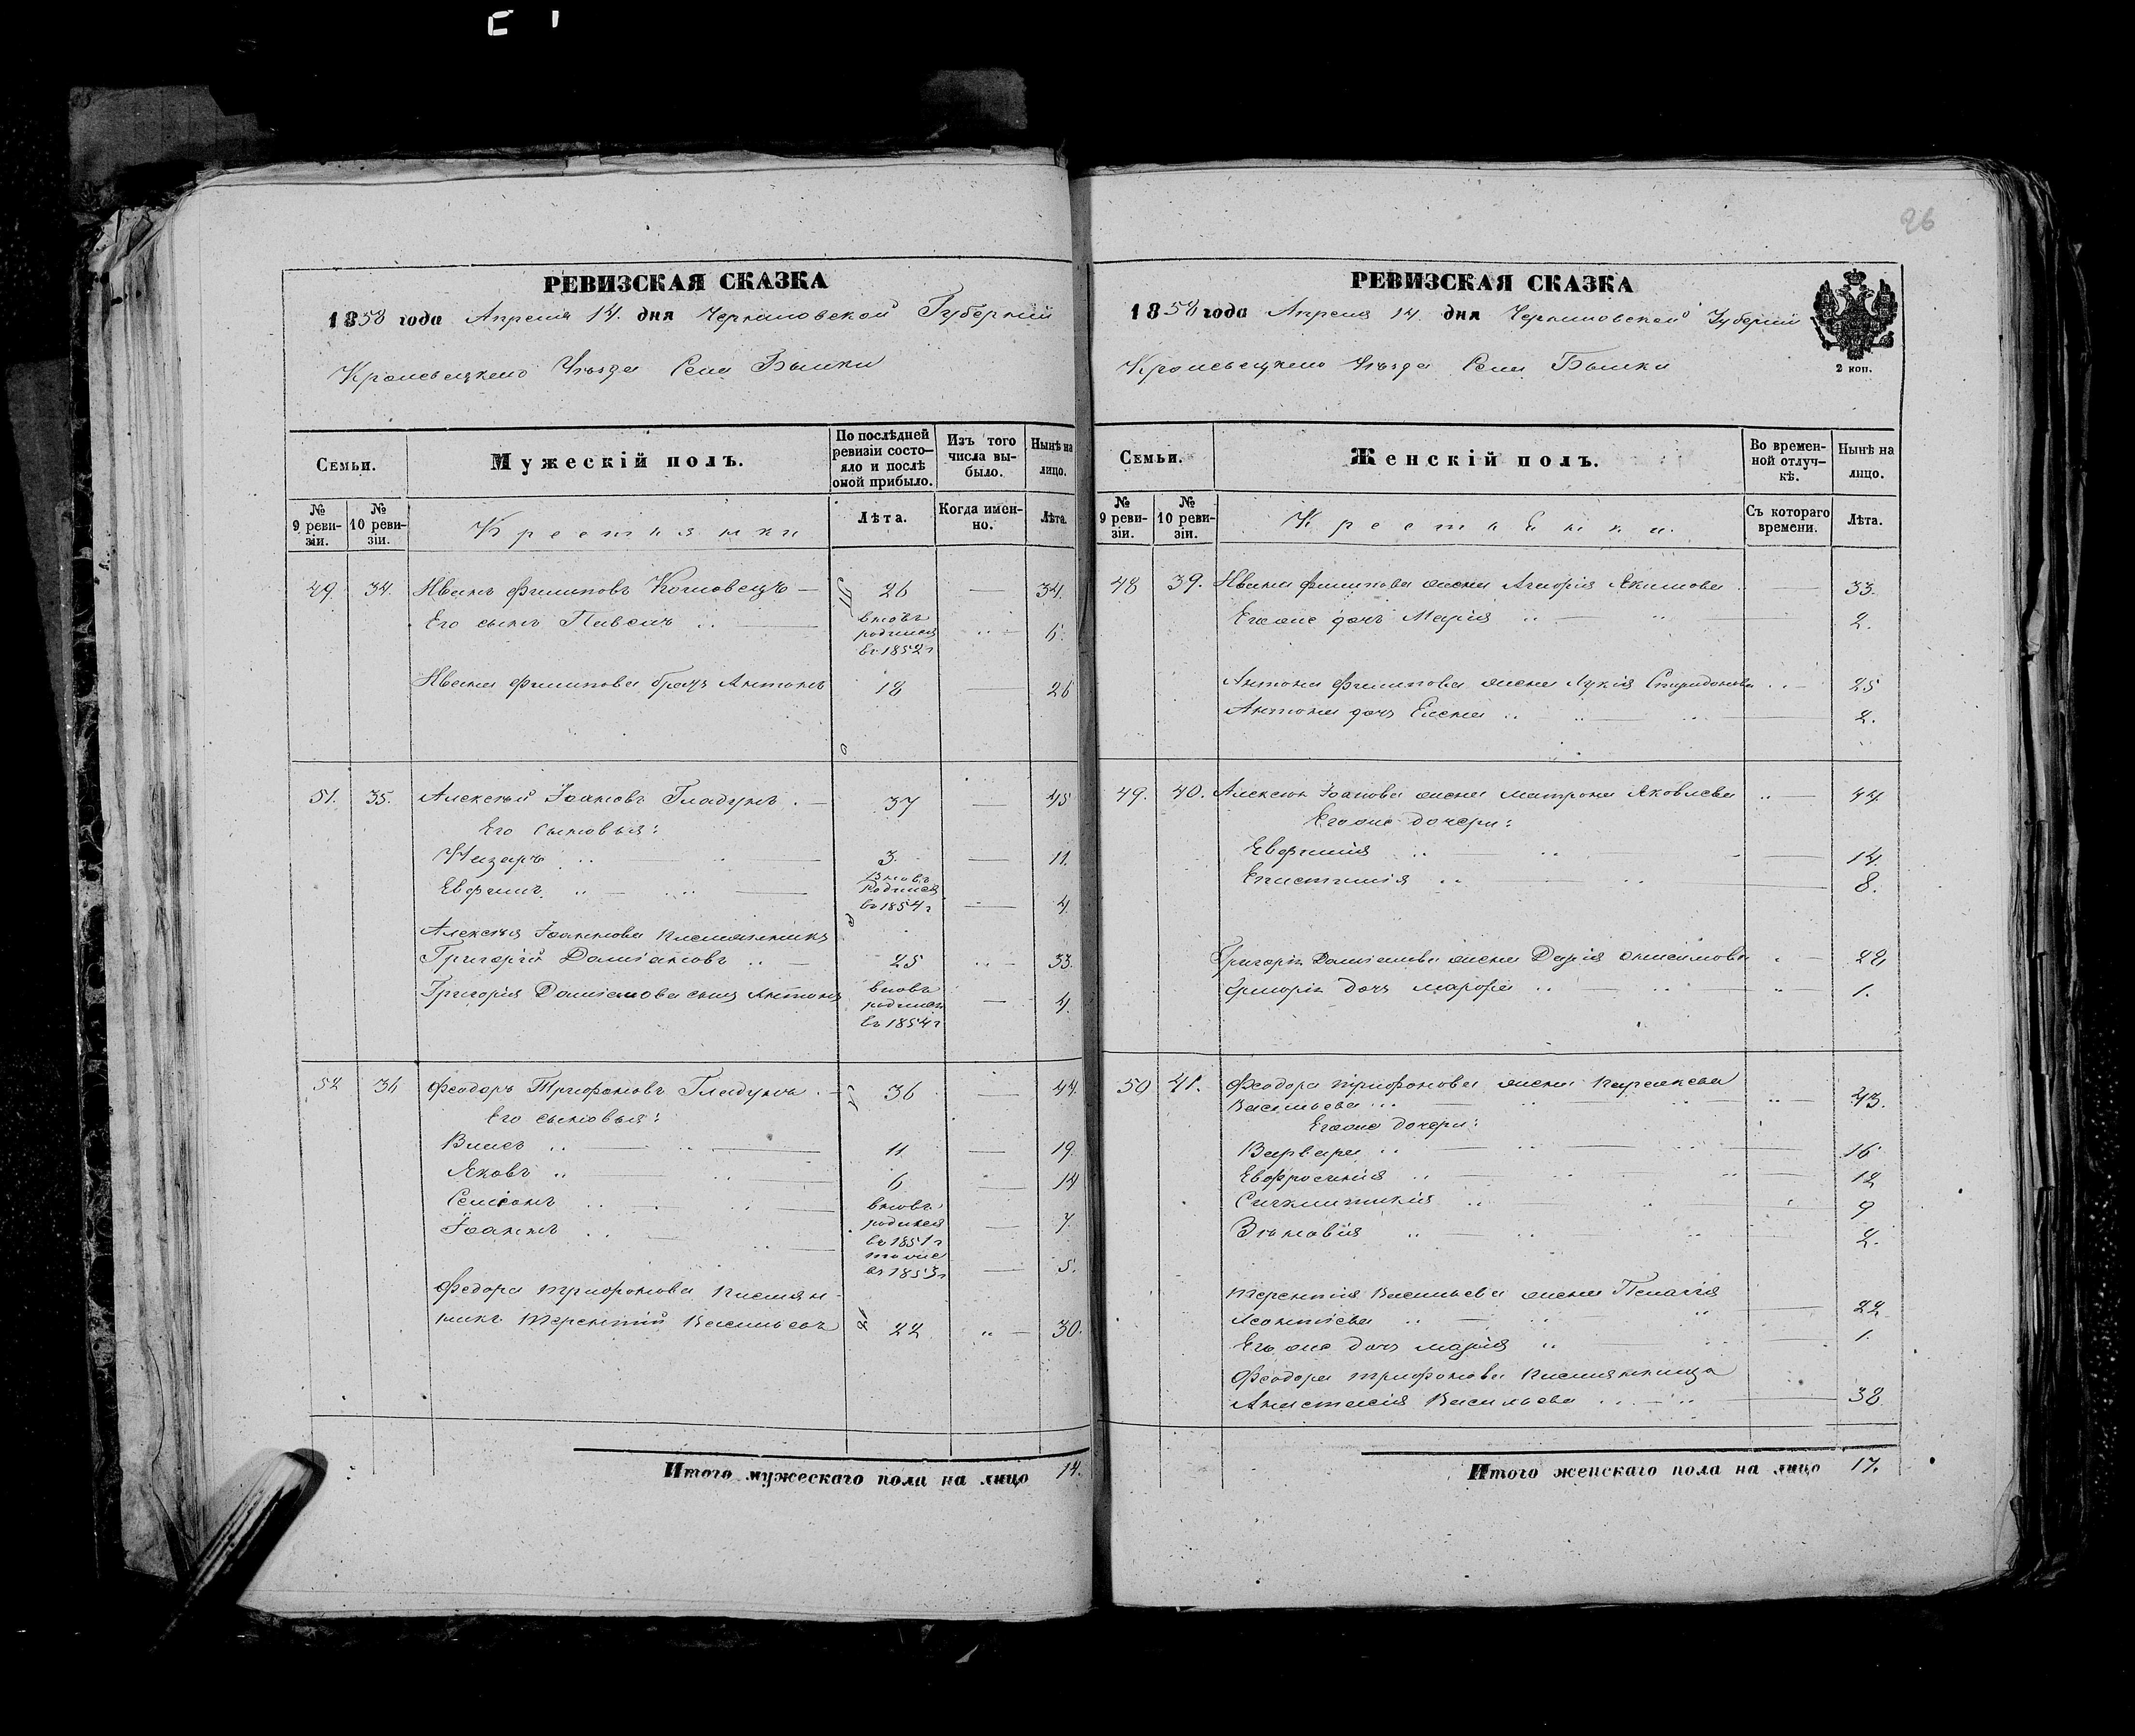 26
РЕВИЗСКАЯ СКАЗКА
1858 года Апреля 14. дня Черниговской Губерніи
Кролевецкого Уѣзда Села Быики
Семьи.
Мужескій полъ.
По послѣдней ревизіи состояло и послѣ оной прибыло.
Изъ того числа выбыло.
Нынѣ на лицо.
№ 9 ревизіи.
№ 10 ревизіи.
Крестьяники
Лѣта.
Когда именно.
Лѣта.
49. 34. Иванъ Филиповъ — 26 — 34.
Его сынъ Павелъ вновь родился въ 1852 г 6.
Ивана Филипова братъ Антонъ 18 — 26
51. 35. Алексѣй Іоановъ Гладунъ. — 37 — 45
Его сыновья:
Назаръ 3. — 11.
Евфимъ вновь родился въ 1854 г — 4
Алексѣя Іоаннова племянникъ
Григорій Даміановъ 25 33.
Григорія Даміанова сынъ Антонъ вновь родился въ 1854 г — 4.
52 36 Феодоръ Трифоновъ Гладунъ. 36 — 44
Его сыновья:
Власъ 11 — 19
Яковъ 6 — 14
Семіонъ вновь родился въ 1851 г — 7
Іоаннъ тоже въ 1853 г — 5.
Федора Трифонова племян-
никъ Терентій Васильевъ 22 30.
Итого мужескаго пола на лицо 14.
РЕВИЗСКАЯ СКАЗКА
1858 года Апреля 14. дня Черниговской Губерніи
Кролевецкого Уѣзда Села Быики
2 коп.
Семьи.
Женскій полъ.
Во временной отлучкѣ.
Нынѣ на лицо.
№ 9 ревизіи.
№ 10 ревизіи.
Крестьянки.
Съ котораго времени.
Лѣта.
48 39. Ивана Филипова жена Акимова — 33.
Его же дочь Марія 2.
Антона Филипова жена Лукія Спиридонова 25
Антона дочь Елена 2.
49. 40. Алексѣя Іоанова жена Матрона Яковлева 44.
Его же дочери:
Евфимія 14.
Епистимія 8.
Григорія Даміанова жена Дарія Онисимова 22
Григорія дочь Марфа 1.
50 41. Феодора Трифонова жена Параскева
Васильева 43.
Его же дочери:
Варвара 16
Евфросинія 12
Синклитикія 9
Зѣновія 2.
Терентія Васильева жена Пелагія
Леонтіева 22
Его же дочь Марія 1.
Феодора Трифонова племянница
Анастасія Васильева 38
Итого женскаго пола на лицо 17.